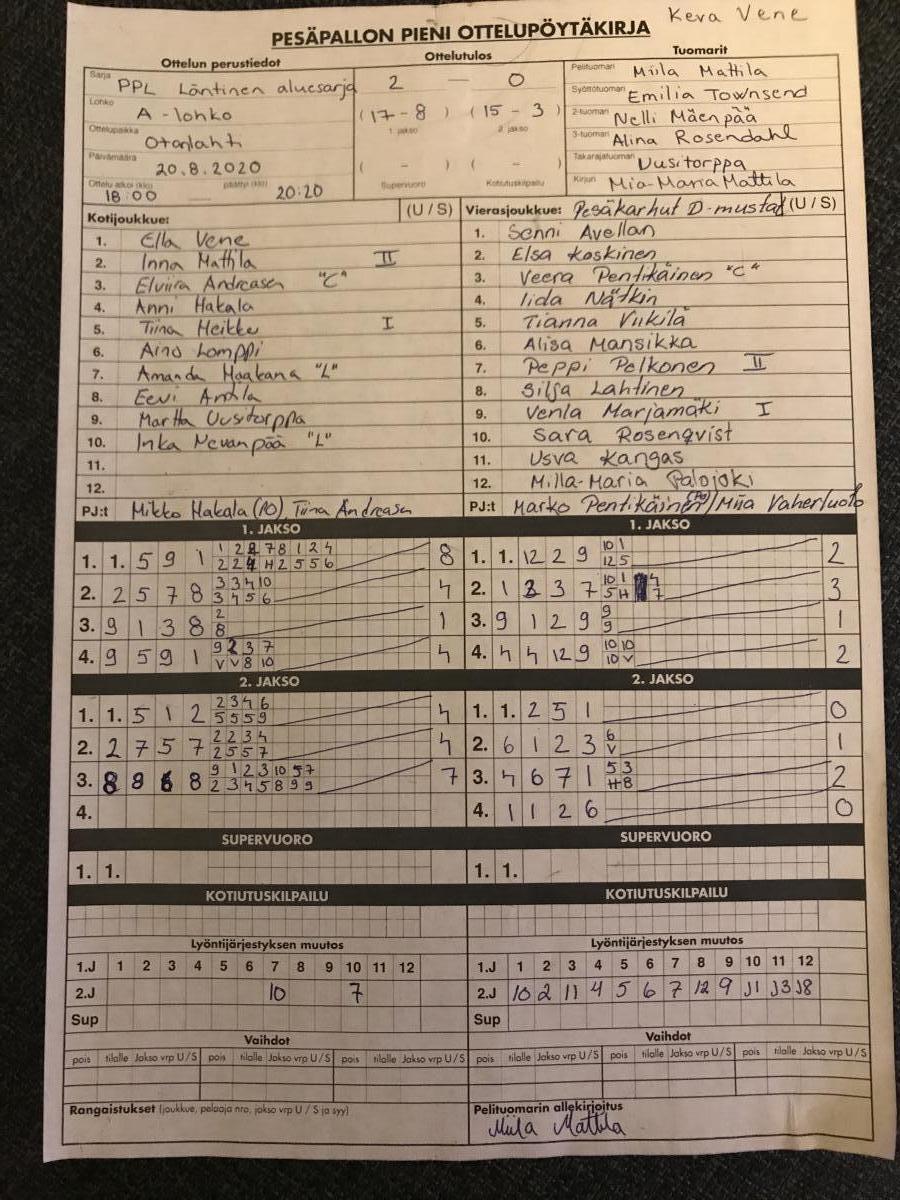 Keva Vene
PESÄPALLON PIENI OTTELUPÖYTÄKIRJA
Ottelun perustiedot
Sarja PPL Läntinen aluesarja
Lohko A-lohko
Ottelupaikka Otanlahti
Päivämäärä 20.8.2020
Ottelu alkoi (klo) 18:00 päättyi (klo) 20:20
Ottelutulos
2 — 0
(17 - 8) (15 - 3)
1. jakso 2. jakso
( - ) ( - )
Supervuoro Kotiutuskilpailu
Tuomarit
Pelituomari Miila Mattila
Syöttötuomari Emilia Townsend
2-tuomari Nelli Mäenpää
3-tuomari Alina Rosendahl
Takarajatuomari Uusitorppa
Kirjuri Mia-Maria Mattila
Kotijoukkue: (U / S)
1. Ella Vene
2. Inna Mattila II
3. Elviira Andreasen "C"
4. Anni Hakala
5. Tiina Heikke I
6. Aino Lomppi
7. Amanda Haakana "L"
8. Eevi Anttila
9. Martta Uusitorppa
10. Inka Nevanpää "L"
11.
12.
PJ:t Mikko Hakala (PO) Tiina Andreasen
Vierasjoukkue: Pesäkarhut D-mustat (U / S)
1. Senni Avellan
2. Elsa Koskinen
3. Veera Pentikäinen "C"
4. Iida Nätkin
5. Tianna Viikilä
6. Alisa Mansikka
7. Peppi Pelkonen II
8. Silja Lahtinen
9. Venla Marjamäki I
10. Sara Rosenqvist
11. Usva Kangas
12. Milla-Maria Palojoki
PJ:t Marko Pentikäinen (PO) / Miia Vaherluoto
1. JAKSO
1. 1. 5 9 1 8
2. 2 5 7 8 3 3 4 10 4
3 4 5 6
3. 9 1 3 8 2 1
8
4. 9 5 9 1 9 2 3 7 4
V V 8 10
2. JAKSO
1. 1. 5 1 2 2 3 4 6 4
5 5 5 9
2. 2 7 5 7 2 2 3 4 4
2 5 5 7
3. 8 9 8 9 1 2 3 10 5 7 7
2 3 4 5 8 9 9
4.
SUPERVUORO
1. 1.
KOTIUTUSKILPAILU
1. JAKSO
1. 1. 12 2 9 10 1 2
12 5
2. 1 3 7 10 1 4 3
5 H 7
3. 9 1 2 9 9 1
9
4. 4 4 12 9 10 10 2
10 V
2. JAKSO
1. 1. 2 5 1 0
2. 6 1 2 3 6 1
V
3. 4 6 7 1 5 3 2
H 8
4. 1 1 2 6 0
SUPERVUORO
1. 1.
KOTIUTUSKILPAILU
Lyöntijärjestyksen muutos
1.J 1 2 3 4 5 6 7 8 9 10 11 12
2.J 10 7
Sup
Lyöntijärjestyksen muutos
1.J 1 2 3 4 5 6 7 8 9 10 11 12
2.J 10 2 11 4 5 6 7 12 9 J1 J3 J8
Sup
Vaihdot
pois tilalle Jakso vrp U / S pois tilalle Jakso vrp U / S pois tilalle Jakso vrp U / S
Vaihdot
pois tilalle Jakso vrp U / S pois tilalle Jakso vrp U / S pois tilalle Jakso vrp U / S
Rangaistukset (joukkue, pelaaja nro, jakso vrp U / S ja syy)
Pelituomarin allekirjoitus
Miila Mattila